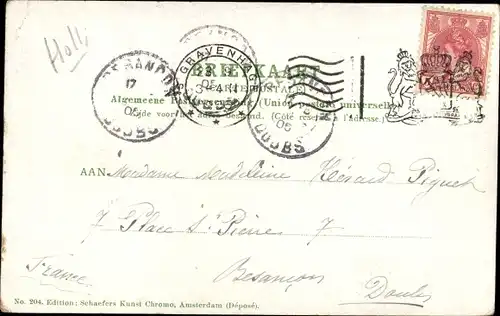 Holl
BRIEFKAART
(CARTE POSTALE)
Algemeene Postvereeniging (Union postale universelle)
Zijde voor het adres bestemd. (Côté réservé à l'adresse.)
'S GRAVENHAGE
BESANCON
17
05
DOUBS
DOUBS
AAN Madame Madeleine Hérard Piquet
7 Place St Pierre 7
Besançon
France
Doubs
No. 204. Edition; Schaefers Kunst Chromo, Amsterdam (Déposé).